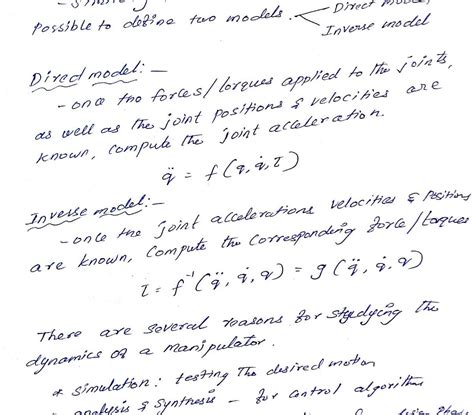 Possible to define two models. Direct model,
Inverse model
Direct model: —
- once the forces/torques applied to the joints,
as well as the joint positions & velocities are
known, compute the joint acceleration.
q̈ = f(q, q̇, τ)
Inverse model: —
- once the joint accelerations velocities & positions
are known, compute the corresponding force/torques
τ = f⁻¹(q̈, q̇, q) = g(q̈, q̇, q)
There are several reasons for studying the
dynamics of a manipulator.
* Simulation: testing the desired motion
analysis & synthesis - for control algorithm